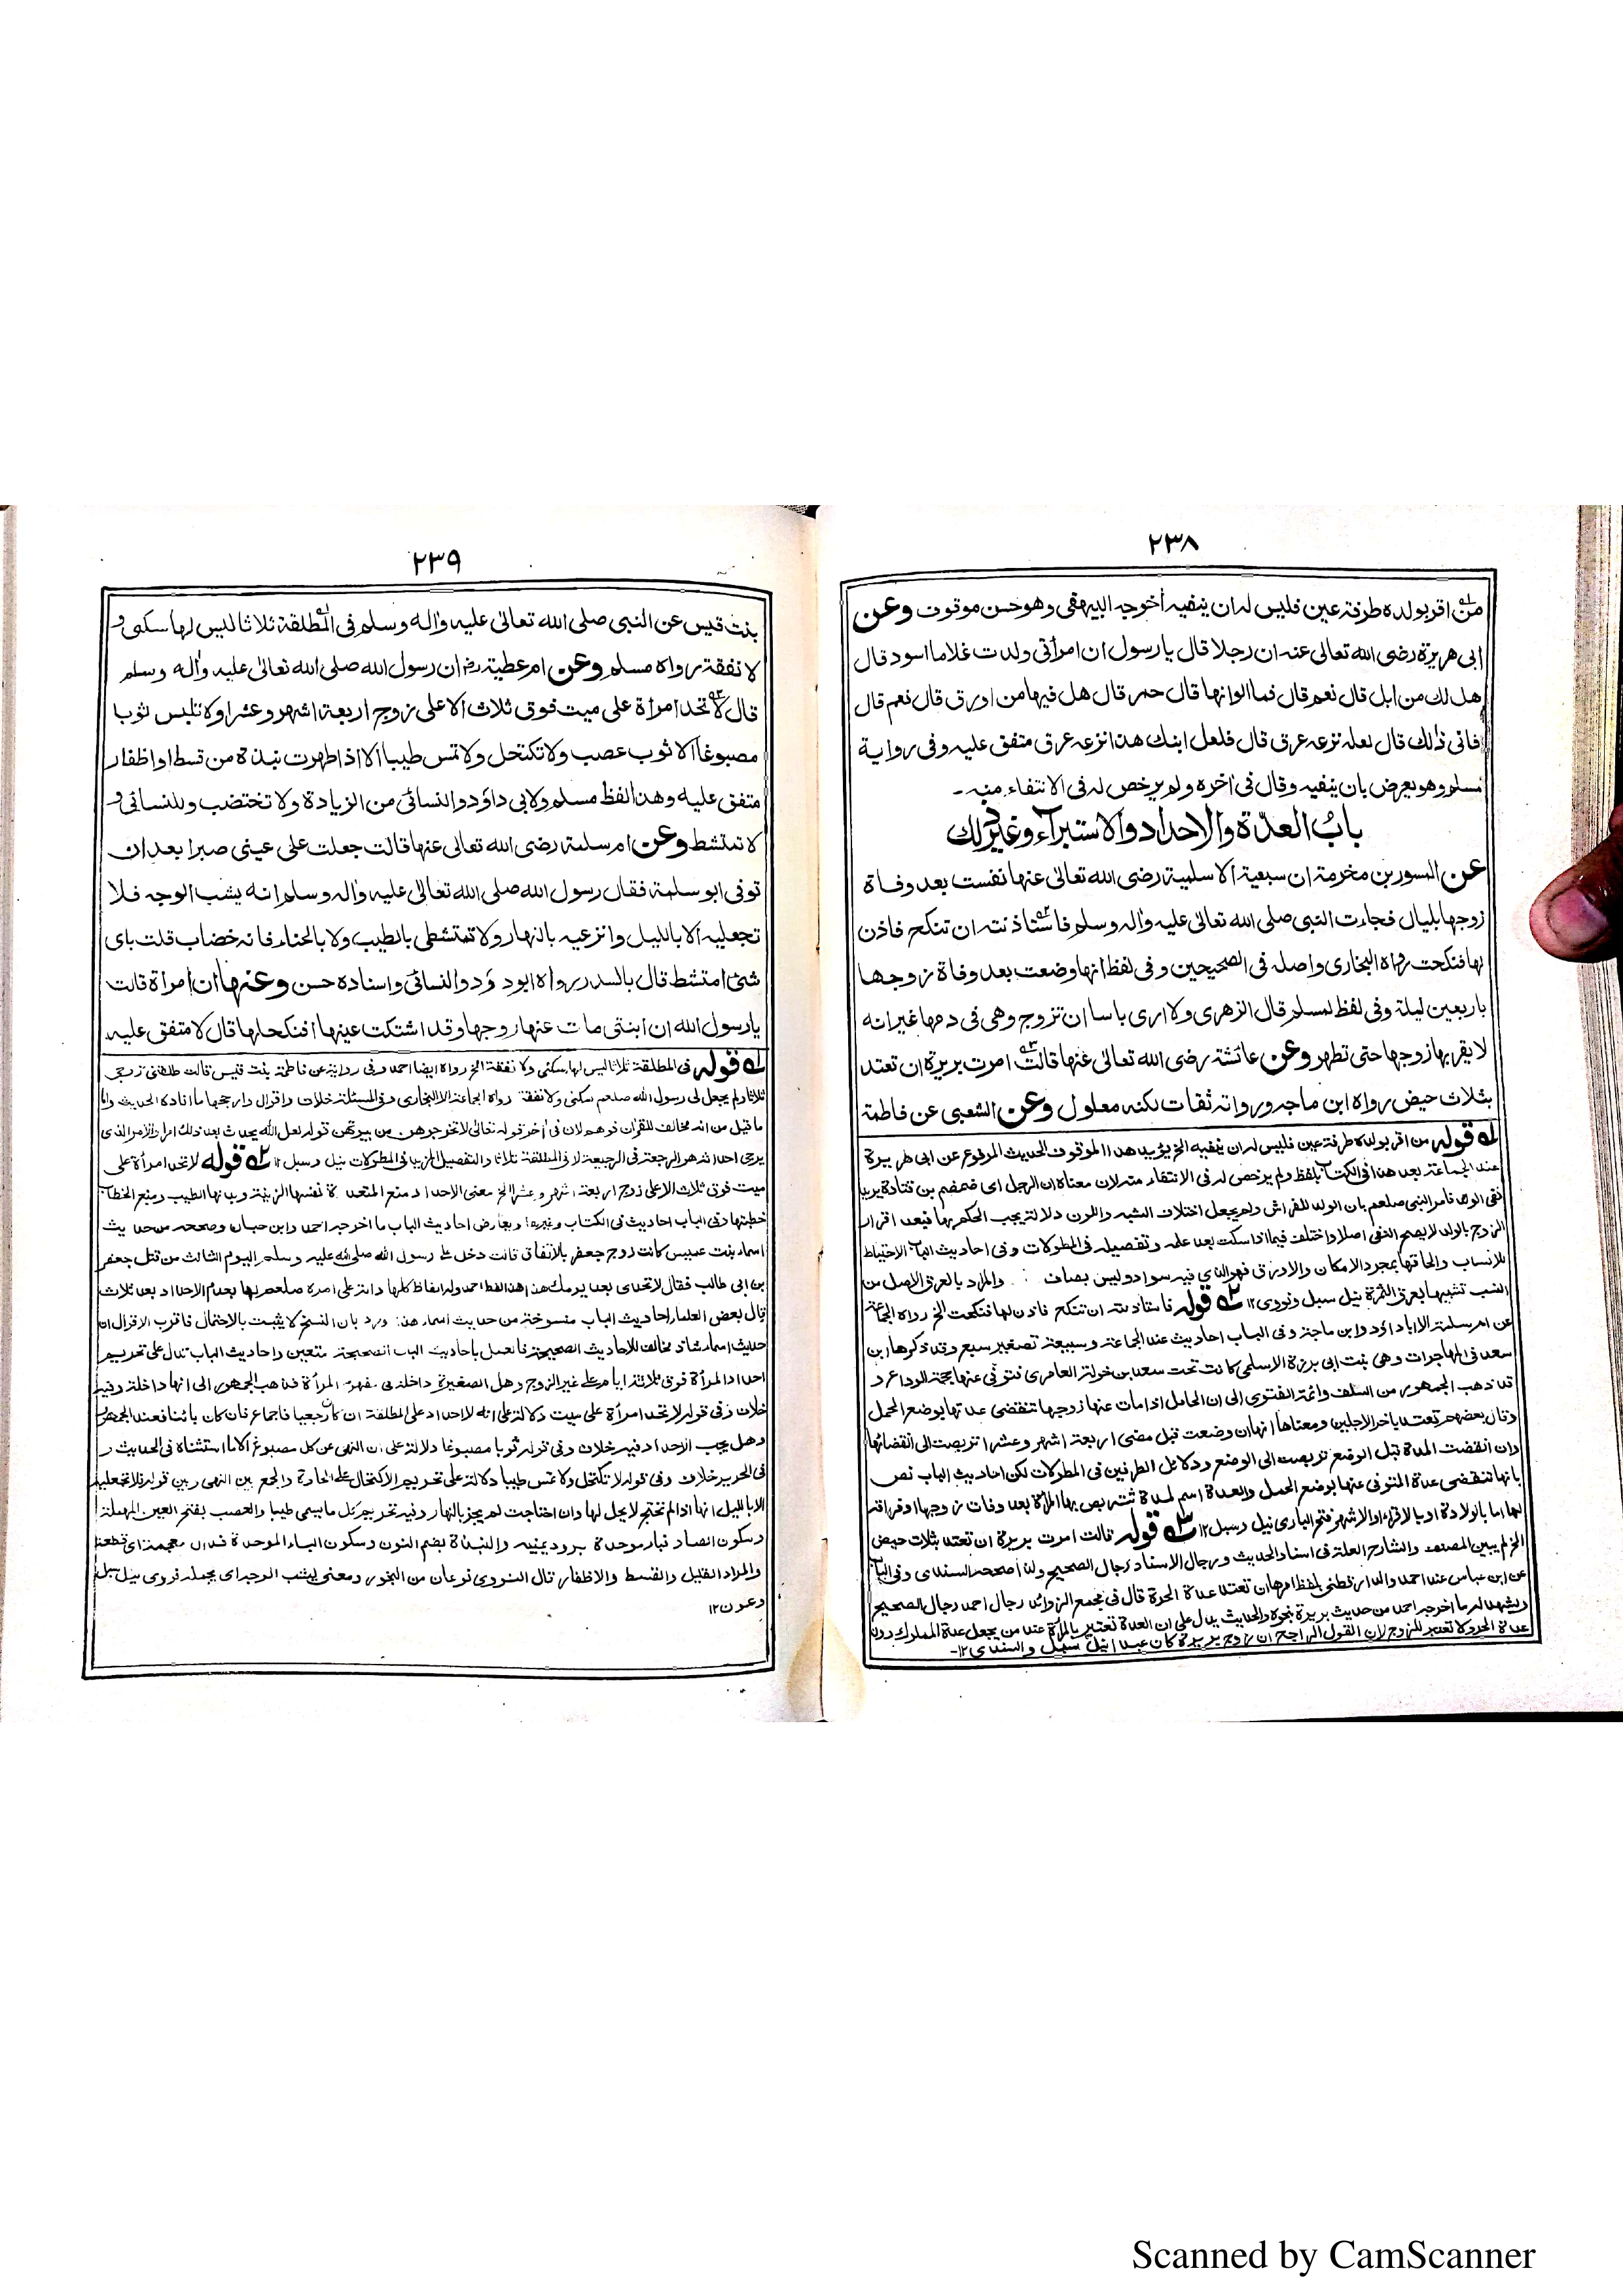 ٢٣٨
من اقر بولده طرفة عين فليس له ان ينفيه أخرجه البيهقى وهو حسن موقوف وعن
ابى هريرة رضى الله تعالى عنه ان رجلا قال يا رسول ان امرأتى ولدت غلاما اسود قال
هل لك من ابل قال نعم قال فما الوانها قال حمر قال هل فيها من اورق قال نعم قال
فانى ذٰلك قال لعله نزعه عرق قال فلعل ابنك هذا نزعه عرق متفق عليه وفى رواية
لمسلم وهو يعرض بان ينفيه وقال فى اٰخره ولم يرخص له فى الانتفاء منه ـ
بابُ العدّة والاحداد والاستبرآء وغير ذلك
عن المسور بن مخرمة ان سبيعة الاسلمية رضى الله تعالى عنها نفست بعد وفاة
زوجها بليال فجاءت النبى صلى الله تعالى عليه واٰله وسلم فاستاذنته ان تنكح فاذن
لها فنكحت رواه البخارى واصله فى الصحيحين وفى لفظ انها وضعت بعد وفاة زوجها
باربعين ليلة وفى لفظ لمسلم قال الزهرى ولا ارى باسا ان تزوج وهى فى دمها غير انه
لا يقربها زوجها حتى تطهر وعن عائشة رضى الله تعالى عنها قالت امرت بريرة ان تعتد
بثلاث حيض رواه ابن ماجه ورواته ثقات لكنه معلول وعن الشعبى عن فاطمة
له قوله من اقر بولده طرفة عين فليس له ان ينفيه الخ يؤيد هذا الموقوف الحديث المرفوع عن ابى هريرة
عند الجماعة بعد هذا فى الكتاب بلفظ ولم يرخص له فى الانتفاء منه لان معناه ان الرجل اى ضمضم بن قتادة يريد
نفى الولد فامر النبى صلعم بان الولد للفراش ولم يجعل اختلاف الشبه واللون دلالة يجب الحكم بها فبعد اقرار
الزوج بالولد لا يصح النفى اصلا واختلف فيما اذا سكت بعد علمه وتفصيله فى المطولات وفى احاديث الباب الاحتياط
للانساب والحاقها بمجرد الامكان والاورق فهو الذى فيه سواد وليس بصاف والمراد بالعرق الاصل من
النسب تشبيها بعرق الثمرة نيل سبل ونووى ١٢ ٢ه قوله فاستاذنته ان تنكح فاذن لها فنكحت الخ رواه الجماعة
عن ام سلمة الا ابا داؤد وابن ماجة وفى الباب احاديث عند الجماعة وسبيعة تصغير سبع وقد ذكرها ابن
سعد فى المهاجرات وهى بنت ابى برزة الاسلمى كانت تحت سعد بن خولة العامرى فتوفى عنها بحجة الوداع و
قد ذهب الجمهور من السلف وائمة الفتوى الى ان الحامل اذا مات عنها زوجها تنقضى عدتها بوضع الحمل
وقال بعضهم تعتد باٰخر الاجلين ومعناها انها ان وضعت قبل مضى اربعة اشهر وعشرا تربصت الى انقضائها
وان انقضت المدة قبل الوضع تربصت الى الوضع ودلائل الطرفين فى المطولات لكن احاديث الباب نص
بانها تنقضى عدة المتوفى عنها بوضع الحمل والعدة اسم لمدة تتربص بها المرأة بعد وفات زوجها او فراقه
لها اما بالولادة او بالاقراء او الاشهر فتح البارى نيل وسبل ١٢ ٣ه قوله قالت امرت بريرة ان تعتد بثلاث حيض
الخ لم يبين المصنف والشارح العلة فى اسناد الحديث ورجال الاسناد رجال الصحيح ولذا صححه السندى وفى الباب
عن ابن عباس عند احمد والدارقطنى بلفظ امرها ان تعتد عدة الحرة قال فى مجمع الزوائد رجال احمد رجال الصحيح
ويشهد له ما اخرجه احمد من حديث بريرة بنحوه والحديث يدل على ان العدة تعتبر بالمرأة عند من يجعل عدة المملوك دون
عدة الحرة ولا تعتبر للزوج لان القول الراجح ان زوج بريرة كان عبدا نيل سبل والسندى ١٢-
٢٣٩
بنت قيس عن النبى صلى الله تعالى عليه واٰله وسلم فى المطلقة ثلاثا ليس لها سكنى و
لا نفقة رواه مسلم وعن ام عطية رض ان رسول الله صلى الله تعالىٰ عليه واٰله وسلم
قال لا تحد امرأة على ميت فوق ثلاث الا على زوج اربعة اشهر وعشرا ولا تلبس ثوبا
مصبوغا الا ثوب عصب ولا تكتحل ولا تمس طيبا الا اذا طهرت نبذة من قسط او اظفار
متفق عليه وهذا لفظ مسلم ولابى داؤد والنسائى من الزيادة ولا تختضب وللنسائى و
لا تمتشط وعن ام سلمة رضى الله تعالى عنها قالت جعلت على عينى صبرا بعد ان
توفى ابو سلمة فقال رسول الله صلى الله تعالىٰ عليه واٰله وسلم انه يشب الوجه فلا
تجعليه الا بالليل وانزعيه بالنهار ولا تمتشطى بالطيب ولا بالحناء فانه خضاب قلت باى
شئ امتشط قال بالسدر رواه ابوداؤد والنسائى واسناده حسن وعنها ان امرأة قالت
يا رسول الله ان ابنتى مات عنها زوجها وقد اشتكت عينها افنكحلها قال لا متفق عليه
له قوله فى المطلقة ثلاثا ليس لها سكنى ولا نفقة الخ رواه ايضا احمد وفى رواية عن فاطمة بنت قيس قالت طلقنى زوجى
ثلاثا ولم يجعل لى رسول الله صلعم سكنى ولا نفقة رواه الجماعة الا البخارى وفى المسئلة خلاف واقوال وارجحها ما افاده الحديث واما
ما قيل من انه مخالف للقراٰن فوهم لان فى اٰخر قوله تعالى لا تخرجوهن من بيوتهن قوله لعل الله يحدث بعد ذلك امرا والامر الذى
يرجى احداثه هو الرجعة فى الرجعية لا فى المطلقة ثلاثا والتفصيل المزيد فى المطولات نيل وسبل ١٢ ٢ه قوله لا تحد امرأة على
ميت فوق ثلاث الا على زوج اربعة اشهر وعشرا الخ معنى الاحداد منع المعتدة نفسها الزينة وبدنها الطيب ومنع الخطاب
خطبتها وفى الباب احاديث فى الكتاب وغيره ويعارض احاديث الباب ما اخرجه احمد وابن حبان وصححه من حديث
اسماء بنت عميس كانت زوج جعفر بالاتفاق قالت دخل على رسول الله صلى الله عليه وسلم اليوم الثالث من قتل جعفر
بن ابى طالب فقال لا تحدى بعد يومك هذا هذا لفظ احمد وله الفاظ كلها دالة على امره صلعم لها بعدم الاحداد بعد ثلاث
قال بعض العلماء احاديث الباب منسوخة من حديث اسماء هذه ورد بان النسخ لا يثبت بالاحتمال فاقرب الاقوال ان
حديث اسماء شاذ مخالف للاحاديث الصحيحة فالعمل باحاديث الباب الصحيحة متعين واحاديث الباب تدل على تحريم
احداد المرأة فوق ثلاثة ايام على غير الزوج وهل الصغيرة داخلة فى مفهوم المرأة فذاهب الجمهور الى انها داخلة وفيه
خلاف وفى قوله لا تحد امرأة على ميت دلالة على انه لا احداد على المطلقة ان كان رجعيا فاجماع فان كان بائنا فعند الجمهور
وهل يجب الاحداد فيه خلاف وفى قوله ثوبا مصبوغا دلالة على ان النهى عن كل مصبوغ الا ما استثناه فى الحديث و
فى الحرير خلاف وفى قوله لا تكتحل ولا تمس طيبا دلالة على تحريم الاكتحال على الحادة والجمع بين النهى وبين قوله فلا تجعليه
الا بالليل انها اذا لم تحتج لا يحل لها وان احتاجت لم يجز بالنهار وفيه تحريم كل ما يسمى طيبا والعصب بفتح العين المهملة
وسكون الصاد فباء موحدة برود يمنية والنبذة بضم النون وسكون الباء الموحدة فذال معجمة اى قطعة
والمراد القليل والقسط والاظفار قال النووى نوعان من البخور ومعنى يشب الوجه اى يجمله نووى نيل سبل
وعون ١٢
Scanned by CamScanner